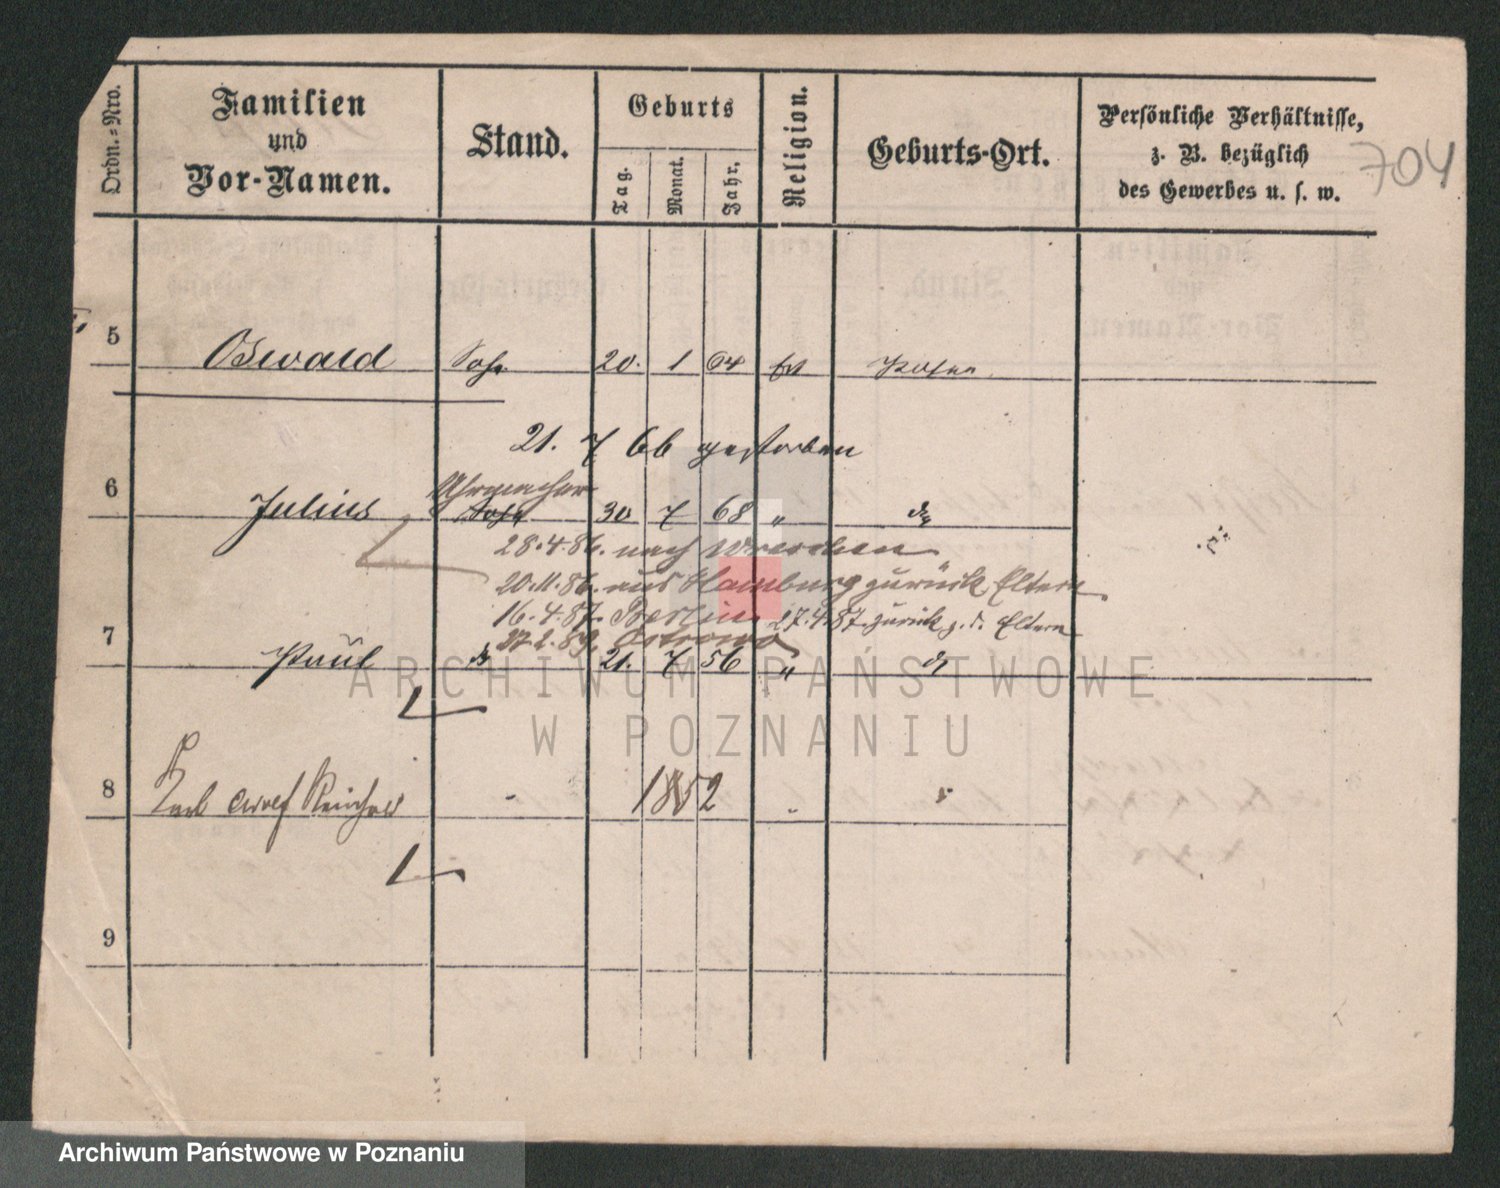 Ordn.-Nro.
Familien
und
Vor-Namen.
Stand.
Geburts
Tag.
Monat.
Jahr.
Religion.
Geburts-Ort.
Persönliche Verhältnisse,
z. B. bezüglich
des Gewerbes u. s. w.
704
5 Oswald Sohn 20. 1 64 Posen
21. 7 66 gestorben
Uhrmacher
6 Julius Sohn 30 7 68 "
28.4.86. nach Dresden
20.11.86. aus Hamburg zurück Eltern
16.4.87. Berlin 27.4.87. zurück z. d. Eltern
27.2.89. Ostrowo
7 Paul 21. 7 56 "
8 Karl Reinhold 1852
9
ARCHIWUM PAŃSTWOWE
W POZNANIU
Archiwum Państwowe w Poznaniu